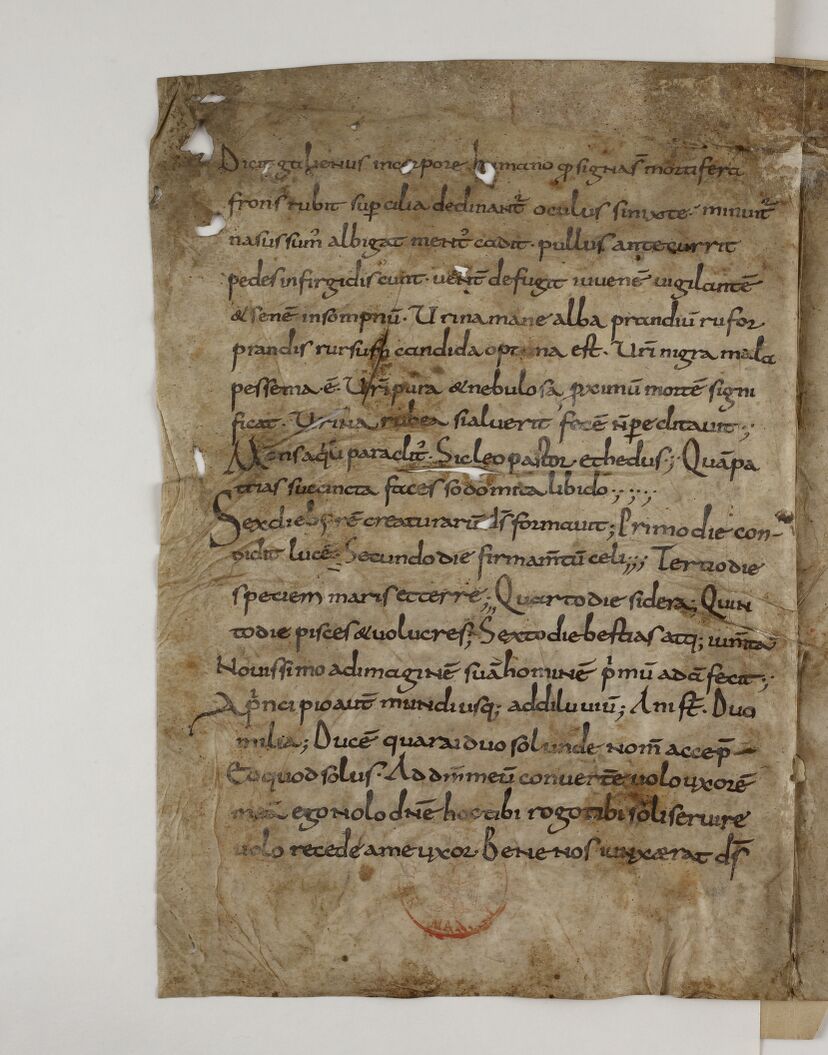 Dicit galienus incorpore humano q̄ signas̄ mortifera
frons rubit supcilia declinant̄ oculus sinixte · minuit̄
nasus sum̄ albigat ment̄ cadit · pullus antecurrit
pedes infirgidiscunt · vent̄ defugit iuuenē uigilantē
& senē insompnū · Urina mane alba prandiū rufor
prandis rursusq; candida optima est · Urī nigra mala
pessema · ē · Urī pura & nebulosa p̄ximū mortē signi
ficat · Urina rubea sialuerit fecē n̄ peditauit ;
Mons aqū paraclit̄ · Sic leo pastor · et hedus ; Quā pa
trias succincta faces sodomita libido ; ; ;
Sex dieb; rērē creaturarū ds̄ formauit ; Primo die con-
didit lucē · Secundo die firmam̄tū celi ; ; Tertio die
speciem maris et terre ; Quarto die sidera ; Quin
to die pisces & uolucres ; Sexto die bestias atq; ium̄ta
Nouissimo ad imaginē suā hominē p̄mū adā fecit ;
A p̄ncipio aut̄ mundi usq; ad diluuiū ; Ani st̄ · Duo
milia ; Ducē quarai duo sol unde nom̄ accep̄
Eo quod solus · Ad dm̄ meū conuerte uolo uxorē
meā ego nolo dn̄e hoc tibi rogo tibi soli seruire
uolo recede ame uxor · Bene nos iunxerat ds̄